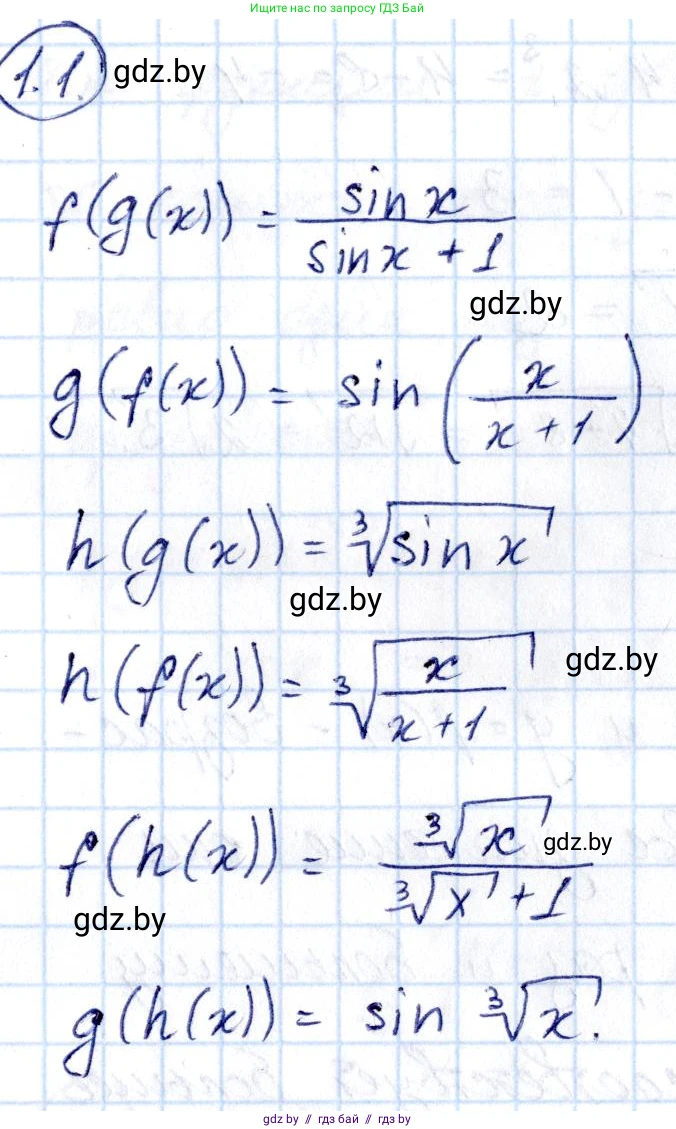 Ищите нас по запросу ГДЗ Бай
1.1. gdz.by
f(g(x)) = sin x / (sin x + 1)
gdz.by
g(f(x)) = sin (x / (x + 1))
h(g(x)) = ∛(sin x)
gdz.by
h(f(x)) = ∛(x / (x + 1))
gdz.by
f(h(x)) = ∛x / (∛x + 1)
gdz.by
gdz.by
g(h(x)) = sin ∛x.
gdz by // гдз бай // gdz by